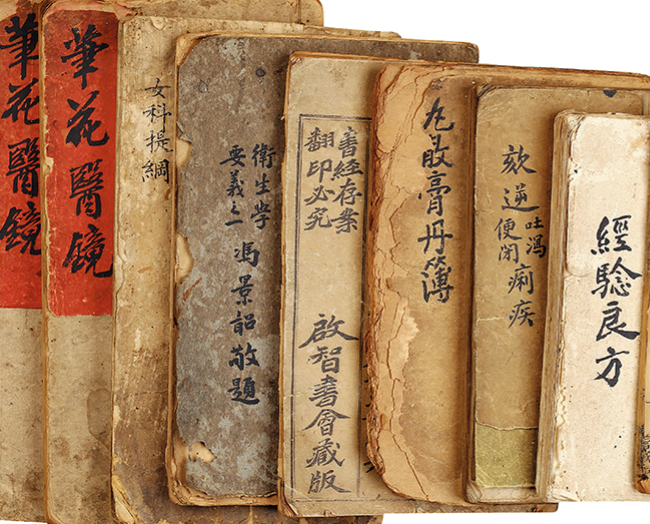 筆花醫鏡
筆花醫鏡
女科提綱
衛生學
要義之一
馮景韶敬題
書經存案
翻印必究
啟智書會藏版
丸散膏丹簿
欬逆
吐瀉
便閉
痢疾
經驗良方